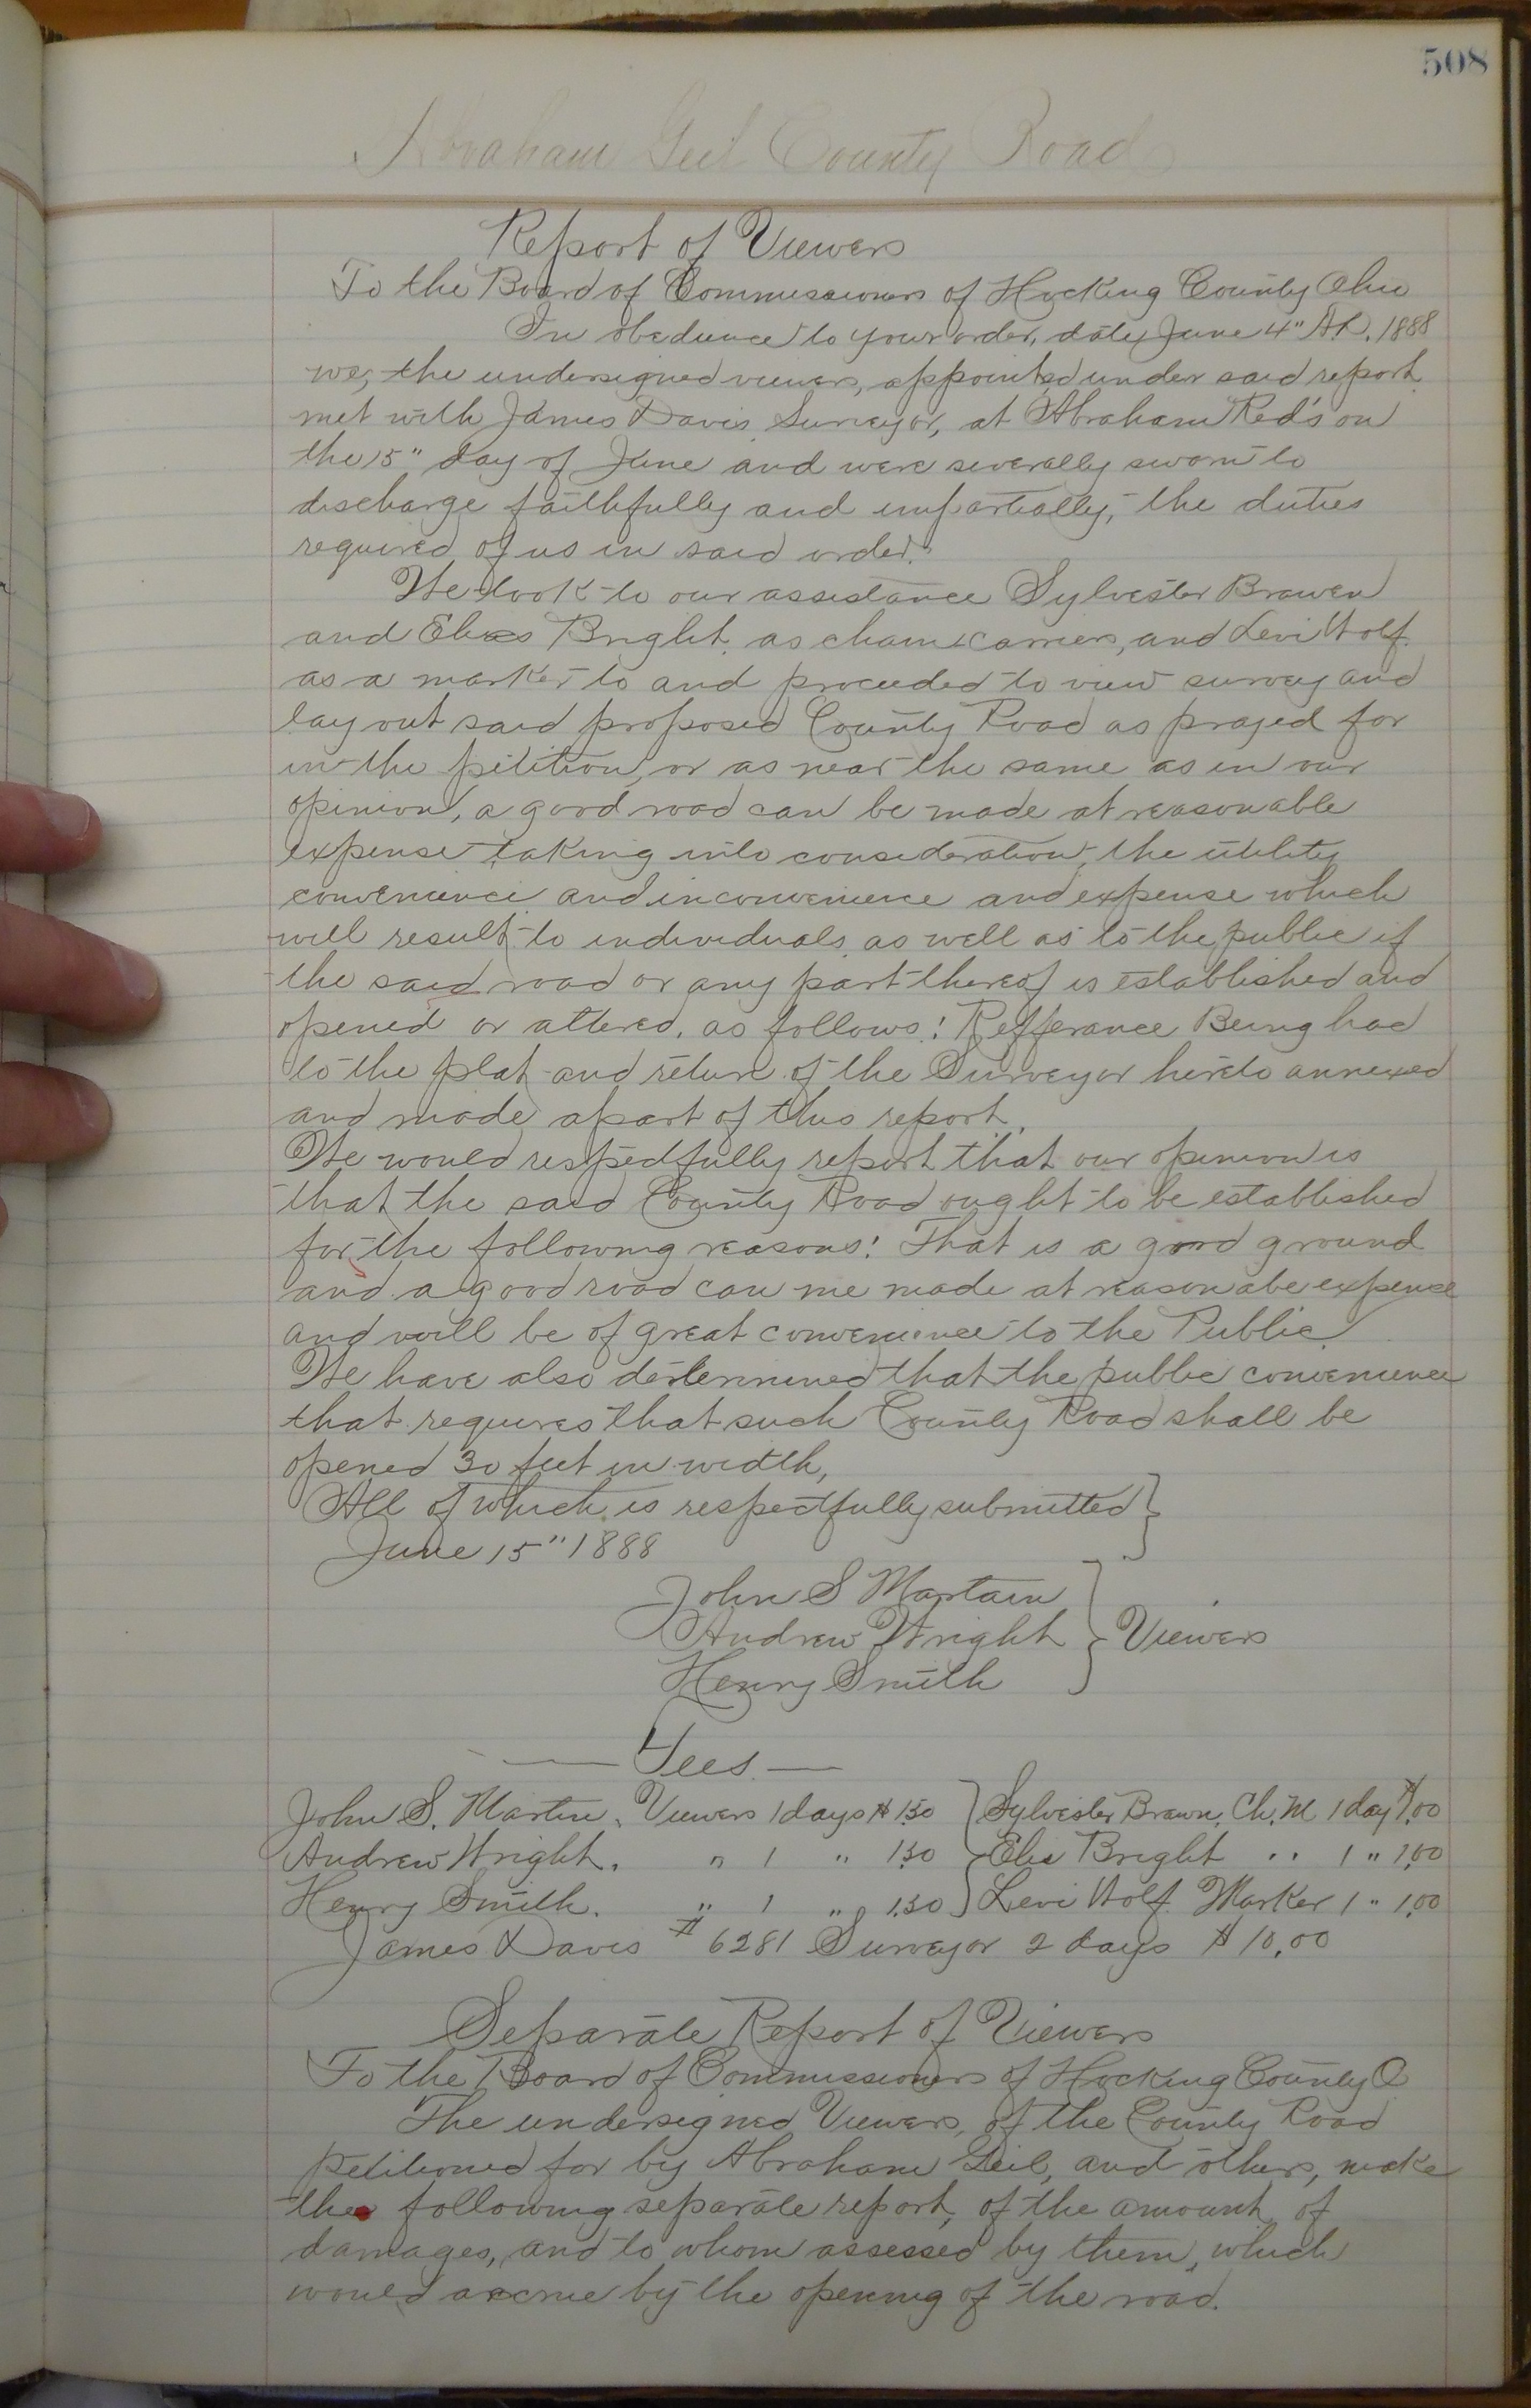 508
Abraham Geil County Road
Report of Viewers
To the Board of Commissioners of Hocking County Ohio
In obedience to your order, date June 4" A.D. 1888
we, the undersigned viewers, appointed under said report
met with James Davis Surveyor, at Abraham Red's on
the 15" day of June and were severally sworn to
discharge faithfully and impartially, the duties
required of us in said order."
We took to our assistance Sylvester Brawen
and Elias Bright, as chain carriers, and Levi Wolf.
as a marker to and proceeded to view survey and
lay out said proposed County Road as prayed for
in the petition, or as near the same as in our
opinion, a good road can be made at reasonable
expense taking into consideration, the utility
convenience and inconvenience and expense which
will result to individuals, as well as to the public if
the said road or any part thereof is established and
opened or altered, as follows: Refferance Being had
to the plat and return of the Surveyor hereto annexed
and made apart of this report.
We would respectfully report that our opinion is
that the said County Road ought to be established
for the following reasons: That is a good ground
and a good road can me made at reasonabe expense
and will be of great convenience to the Public.
We have also determined that the public convenience
that requires that such County Road shall be
opened 30 feet in width,
All of which is respectfully submitted }
June 15" 1888
John S Martain
Andrew Wright } Viewers
Henry Smith
— Fees —
John S. Martin. Viewers 1 days $ 1.50 } Sylvester Brawn. Ch. M 1 day $1.00
Andrew Wright. " 1 " 1.50 } Elis Bright " 1 " 1.00
Henry Smith. " 1 " 1.50 } Levi Wolf. Marker 1 " 1.00
James Davis # 6281 Surveyor 2 days $ 10.00
Separate Report of Viewers
To the Board of Commissioners of Hocking County O
The undersigned Viewers, of the County Road
petitioned for by Abraham Geil, and others, make
the following separate report, of the amount of
damages, and to whom assessed by them, which
would accrue by the opening of the road.